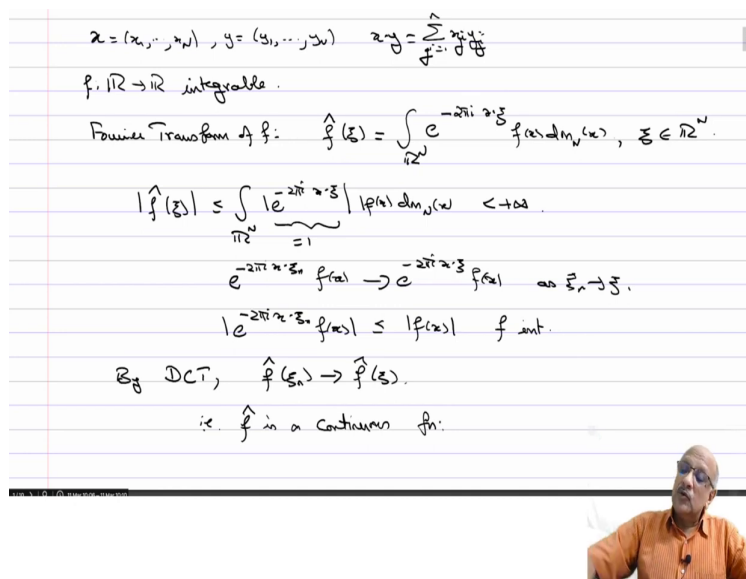 x = (x₁, ‥, x_N) , y = (y₁, …, y_N)   x·y = ∑_{j=1}^{N} x_j y_j
f: ℝ → ℝ integrable.
Fourier Transform of f:   f̂(ξ) = ∫_{ℝ^N} e^{-2πi x·ξ} f(x) dm_N(x) , ξ ∈ ℝ^N.
|f̂(ξ)| ≤ ∫_{ℝ^N} |e^{-2πi x·ξ}| |f(x)| dm_N(x) < +∞.
= 1
e^{-2πi x·ξ_n} f(x) → e^{-2πi x·ξ} f(x)   as ξ_n → ξ.
|e^{-2πi x·ξ_n} f(x)| ≤ |f(x)|   f int.
By DCT,   f̂(ξ_n) → f̂(ξ).
i.e. f̂ is a continuous fn: